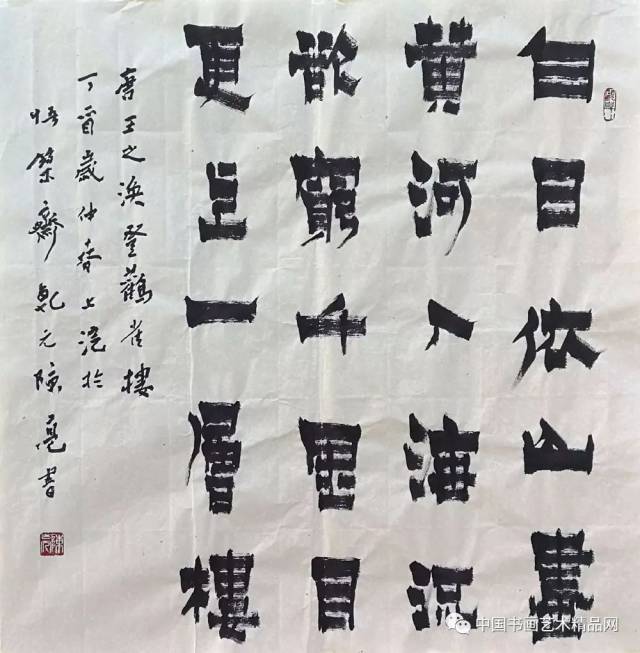 白日依山盡
黄河入海流
欲窮千里目
更上一層樓
唐王之涣登鸛雀樓
丁酉歲仲春上浣於
悟齋乾元陳亮書
中国书画艺术精品网